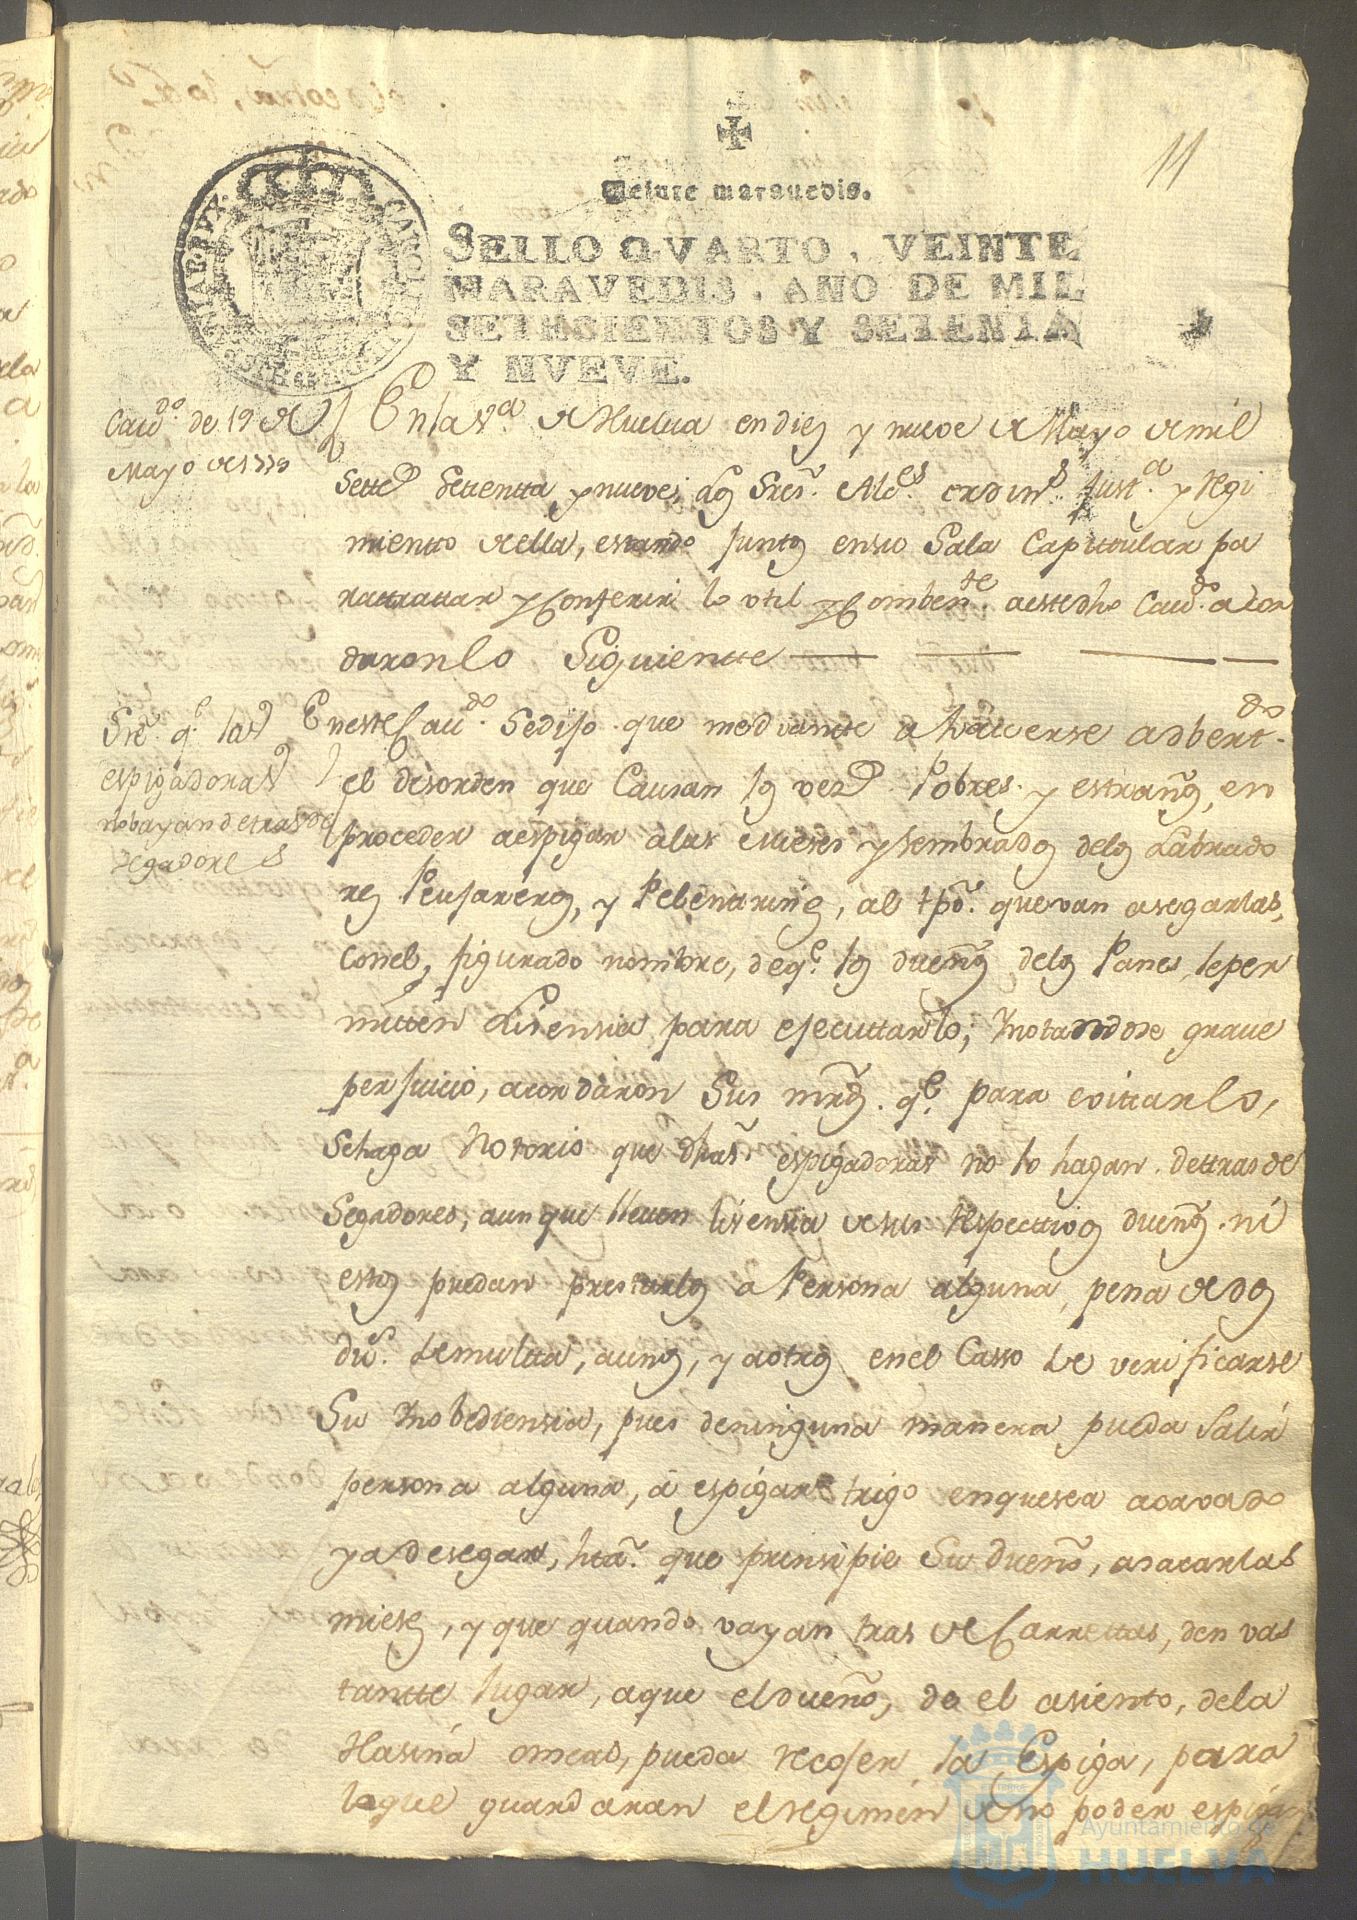 11
Veinte maravedis.
SELLO QVARTO, VEINTE
MARAVEDIS, AÑO DE MIL
SETECIENTOS Y SETENTA
Y NVEVE.
Cavdo. de 19 de
Mayo de 1779
En la Va. de Huelva en diez y nueve de Mayo de mil
Settes. Settentta y nueve; los Sres. Aldes. ordins. Justa. y Regi
mientto de ella, estando Juntos en su Sala Capitular pa
ra ttratar y Conferir lo util y Combente. a este dho Cavdo. acor
daron lo Siguientte
Sre. qe. las
espigadoras
no bayan detras de
segadores
En este Cavdo. Se dijo que mediantte a haverse adbertdo.
el desorden que Causan los vezs. Pobres y estraños, en
proceder a espigar a las Mieses y sembrados de los Labrado
res Peujareros, y Pelentrines, al tpo. que van a segarlas,
con el figurado nombre, de qe. los dueños de los Panes, le per
mitten Lisensia para ejecuttarlo; Notandose grave
perjuicio, acordaron Sus mrds. qe. para evittarlo,
Se haga Notorio que dhas. espigadoras no lo hagan dettras de
Segadores, aunque lleven lisensia de sus Respecttivos dueños ni
estos puedan prestarlos a Persona alguna, pena de dos
dus. de multta, a unos, y a otros en el Casso de verificarse
Su Inobediensia, pues de ninguna manera pueda Salir
persona alguna, á espigar trigo en que sea acavado
ya de segar, hta. que prinsipie Su dueño, a sacar las
mieses, y que quando vayan tras de Carrettas, den vas
tantte lugar, a que el dueño, de el asiento, de la
Hasina o meas, pueda recojer la Espiga, para
lo que guardaran el regimen de no poder espigar
Ayuntamiento de
HUELVA